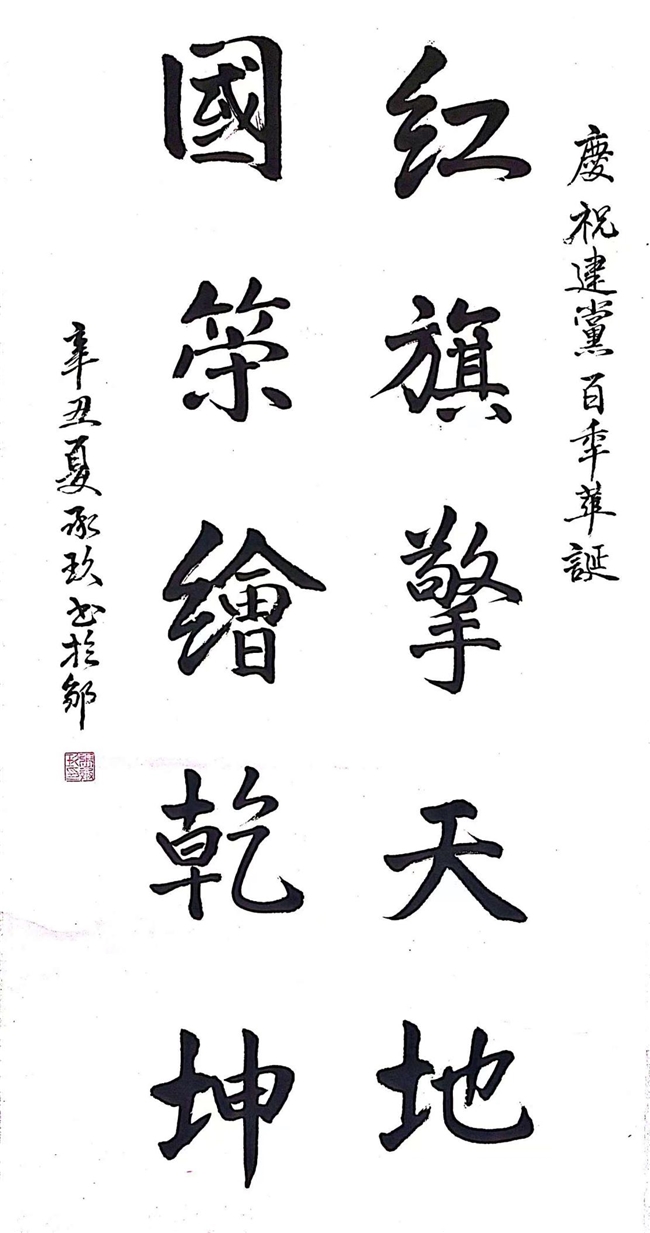 慶祝建黨百秊華誕
红旗擎天地
國策繪乾坤
辛丑夏承玖书於鄒